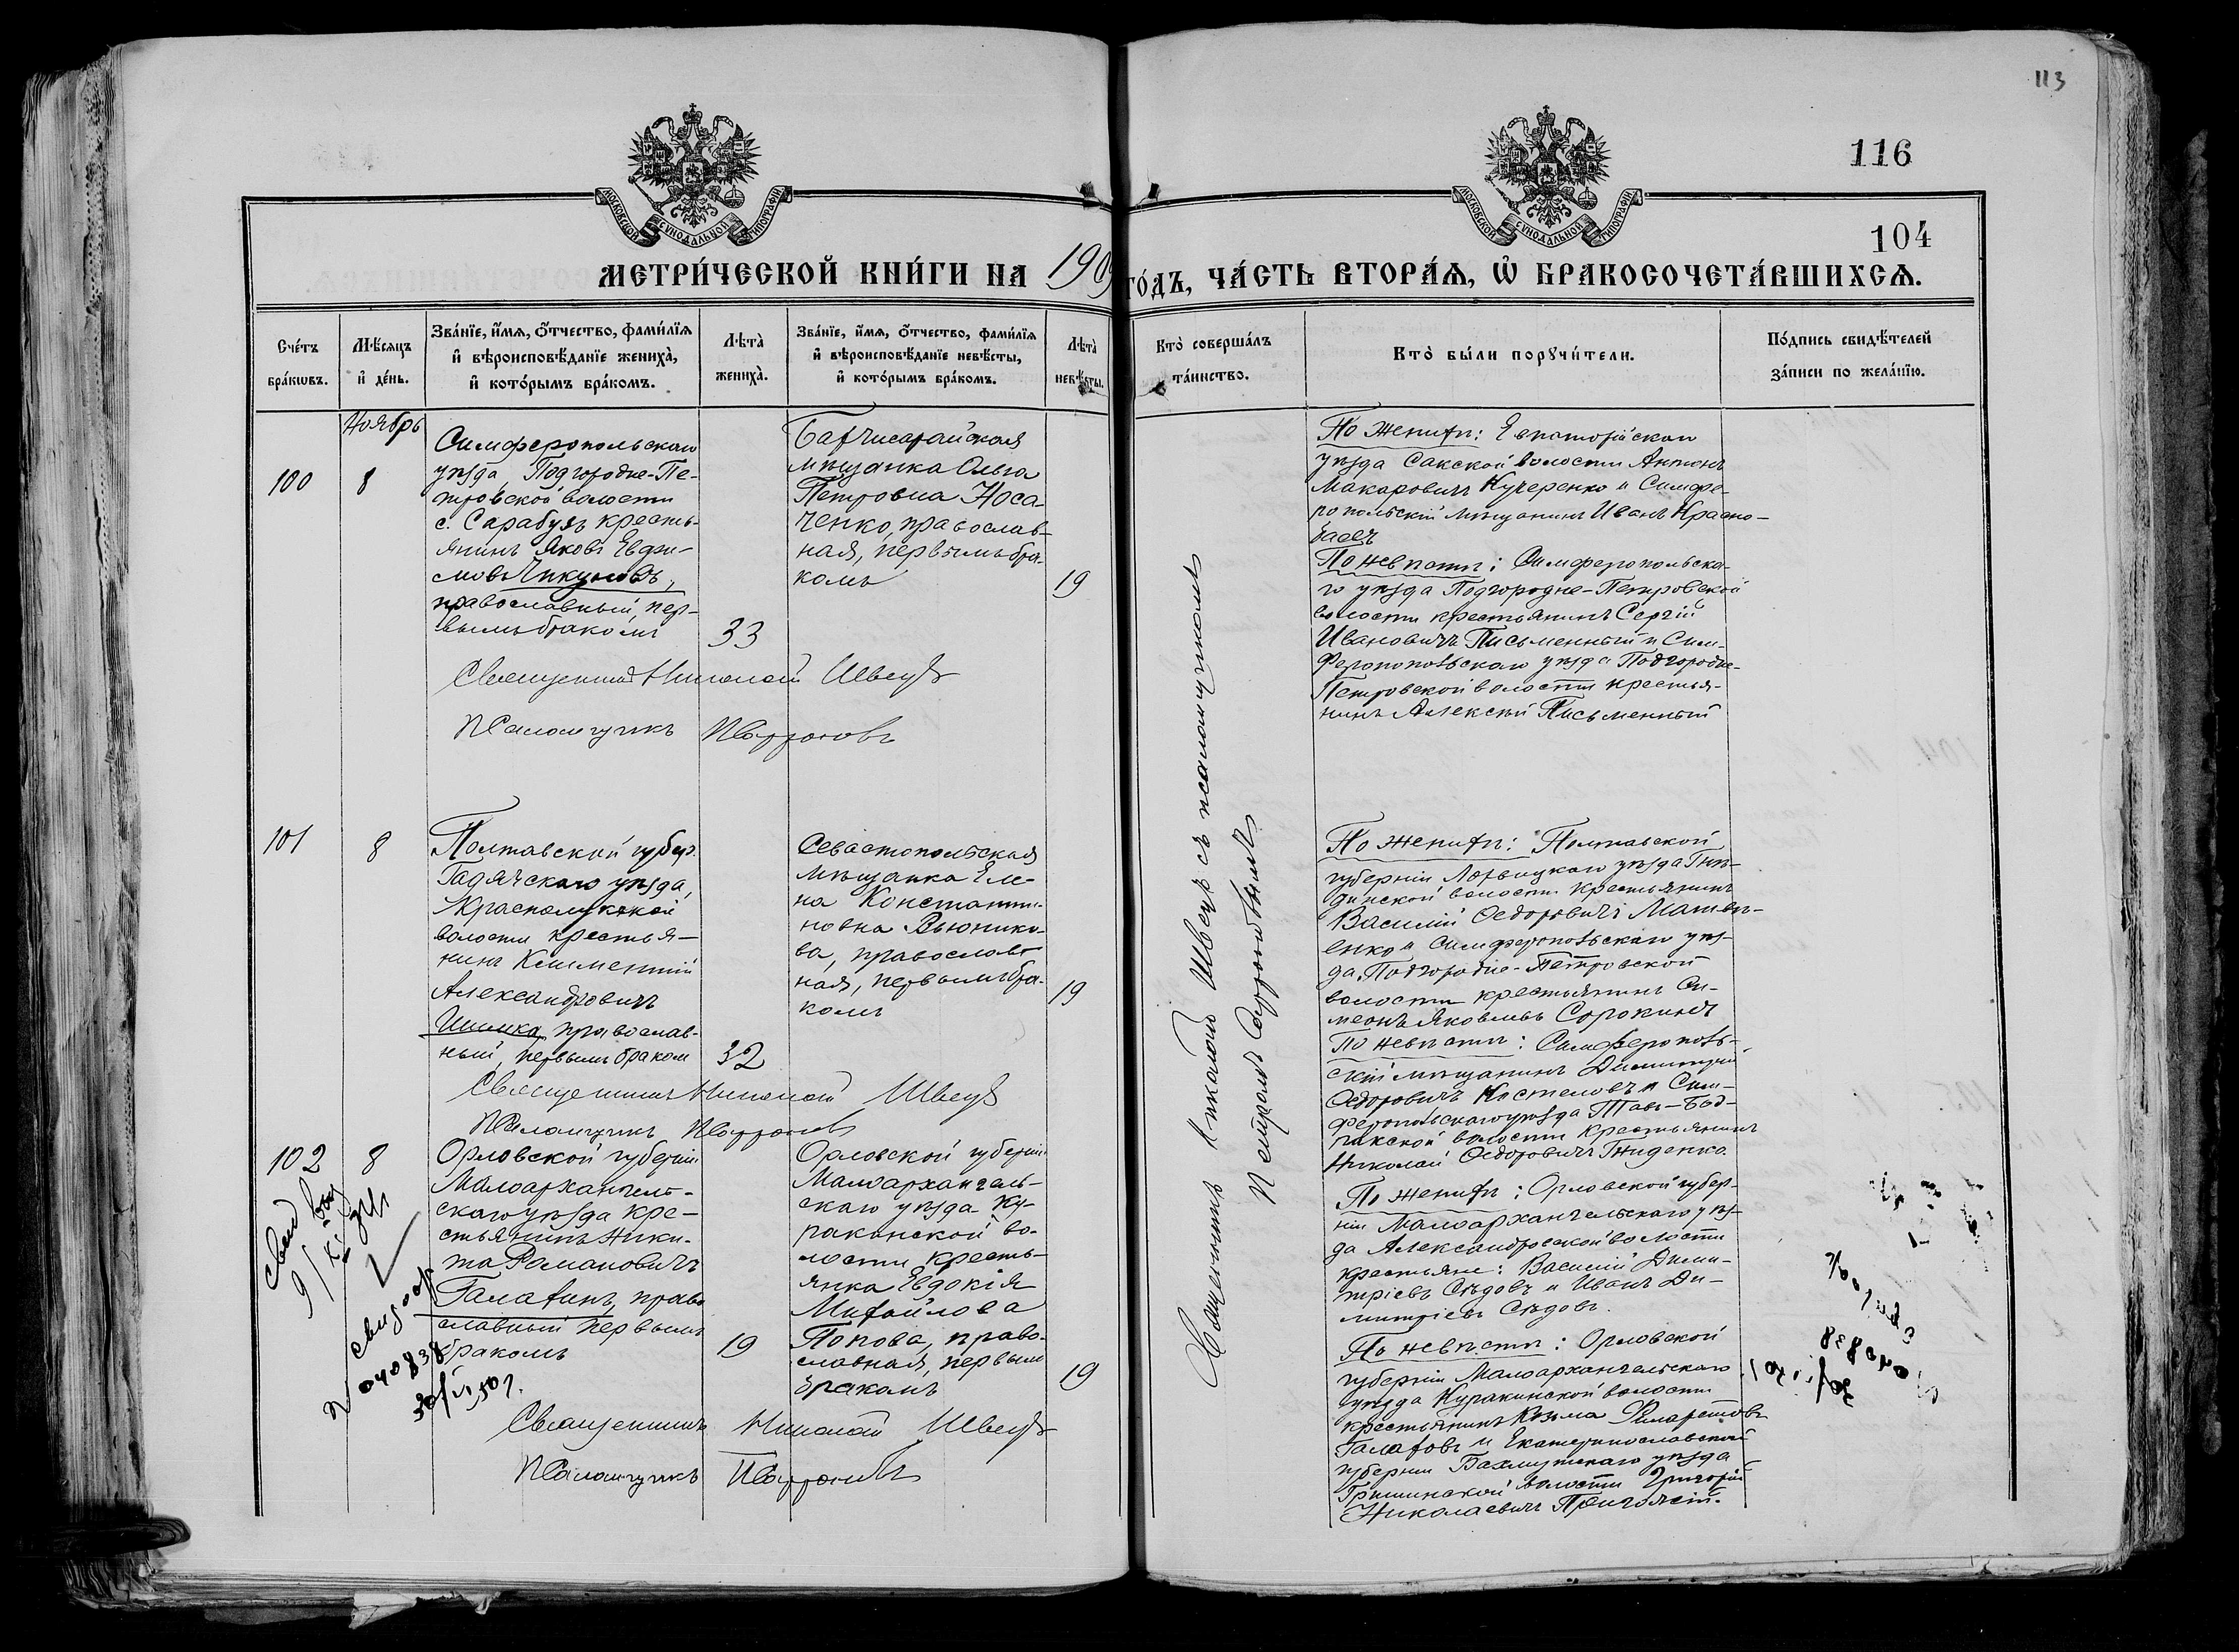 113
116
104
МОСКОВСКОЙ СѴНОДАЛЬНОЙ ТИПОГРАФІИ
МОСКОВСКОЙ СѴНОДАЛЬНОЙ ТИПОГРАФІИ
МЕТРИ́ЧЕСКОЙ КНИ́ГИ НА 1909 ГО́ДЪ, ЧА́СТЬ ВТОРА́Ѧ, Ѽ БРАКОСОЧЕТА́ВШИХСѦ.
Сче́тъ
бра́кѡвъ.
Мѣ́сѧцъ
и҆ де́нь.
Зва́нїе, и҆́мѧ, ѻ҆́тчество, фами́лїѧ
и҆ вѣроисповѣ́данїе жениха̀,
и҆ кото́рымъ бра́комъ.
Лѣта̀
жениха̀.
Зва́нїе, и҆́мѧ, ѻ҆́тчество, фами́лїѧ
и҆ вѣроисповѣ́данїе невѣ́сты,
и҆ кото́рымъ бра́комъ.
Лѣта̀
невѣ́сты.
Кто̀ соверша́лъ
та́инство.
Кто̀ бы́ли порꙋчи́тели.
По́дпись свидѣ́телей
за́писи по жела́нїю.
Ноябрь
100
8
Симферопольскаго
уѣзда, Подгородне-Пе-
тровской волости
с. Сарабузъ кресть-
янинъ Яковъ Евфи-
мовъ
православный, пер-
вымъ бракомъ
33
Бахчисарайская
мѣщанка Ольга
Петровна Носа-
ченко, православ-
ная, первымъ бра-
комъ
19
Священникъ Николай Швецъ
Псаломщикъ
По женихѣ: Евпаторійскаго
уѣзда Сакской волости Антонъ
Макаровичъ Кучеренко и Симфе-
ропольскій мѣщанинъ Иванъ Красно-
баевъ
По невѣстѣ: Симферопольска-
го уѣзда Подгородне-Петровской
волости крестьянинъ Сергій
Ивановичъ Письменный и Сим-
феропопольскаго уѣзда Подгородне-
Петровской волости крестья-
нинъ Алексѣй Письменный
Священникъ Николай Швецъ съ псаломщикомъ
Петромъ
101
8
Полтавской губер.
Гадячскаго уѣзда,
Краснолукской
волости крестья-
нинъ Климентій
Александровичъ
Шимка, православ-
ный, первымъ браком
32
Севастопольская
мѣщанка Еле-
на Константи-
новна Вьюнико-
ва, православ-
ная, первымъ бра-
комъ
19
Священникъ Николай Швецъ
Псаломщикъ
По женихѣ: Полтавской
губерніи Лохвицкаго уѣзда Гнѣ-
динской волости крестьянинъ
Василій Ѳедоровичъ Матвѣ-
енко и Симферопольскаго уѣз-
да, Подгородне-Петровской
волости крестьянинъ Си-
меонъ Яковлевъ Сорокинъ
По невѣстѣ: Симферополь-
скій мѣщанинъ Димитрій
Ѳедоровичъ Костеловъ и Сим-
феропольскаго уѣзда Тавъ-Бад-
ракской волости крестьянинъ
Николай Ѳедоровичъ Гниденко
102
8
Орловской губерніи
Малоархангель-
скаго уѣзда кре-
стьянинъ Ники-
та Романовичъ
Галахинъ, право
славный первымъ
бракомъ
19
Орловской губерніи
Малоархангель-
скаго уѣзда Ку-
ракинской во-
лости кресть-
янка Евдокія
Михайлова
Попова, право-
славная, первым
бракомъ
19
Священникъ Николай Швецъ
Псаломщикъ
040838
По женихѣ: Орловской губер-
ніи Малоархангельскаго уѣз-
да Александровской волости
крестьяне: Василій Дими-
тріевъ Сѣдовъ и Иванъ Ди-
митріевъ Сѣдовъ.
По невѣстѣ: Орловской
губерніи Малоархангельскаго
уѣзда Куракинской волости
крестьянинъ Козьма Филаретовъ
Галаховъ и Екатеринославской
губерніи Бахмутскаго уѣзда
Гришинской волости Григорій
Николаевичъ
040838